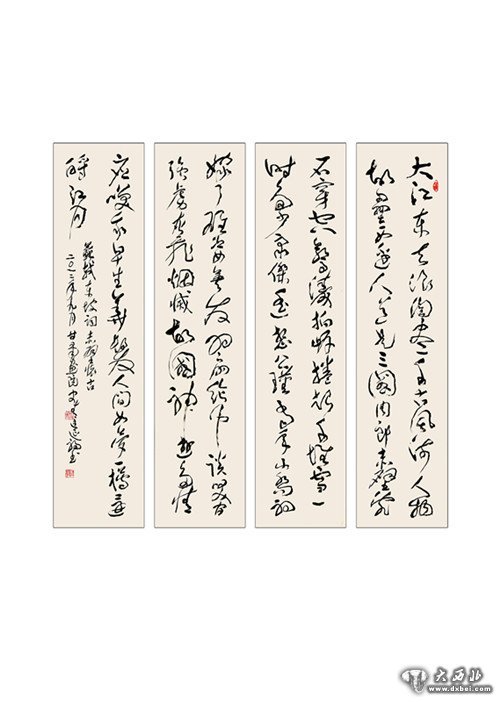 大江东去浪淘尽千古风流人物
故垒西边人道是三国周郎赤壁乱
石穿空惊涛拍岸卷起千堆雪一
时多少豪杰遥想公瑾当年小乔初
嫁了雄姿英发羽扇纶巾谈笑间
强虏灰飞烟灭故国神游多情
应笑我早生华发人间如梦一樽还
酹江月
苏轼东坡词赤壁怀古
二〇一二年九月甘肃
大西北
www.dxbei.com